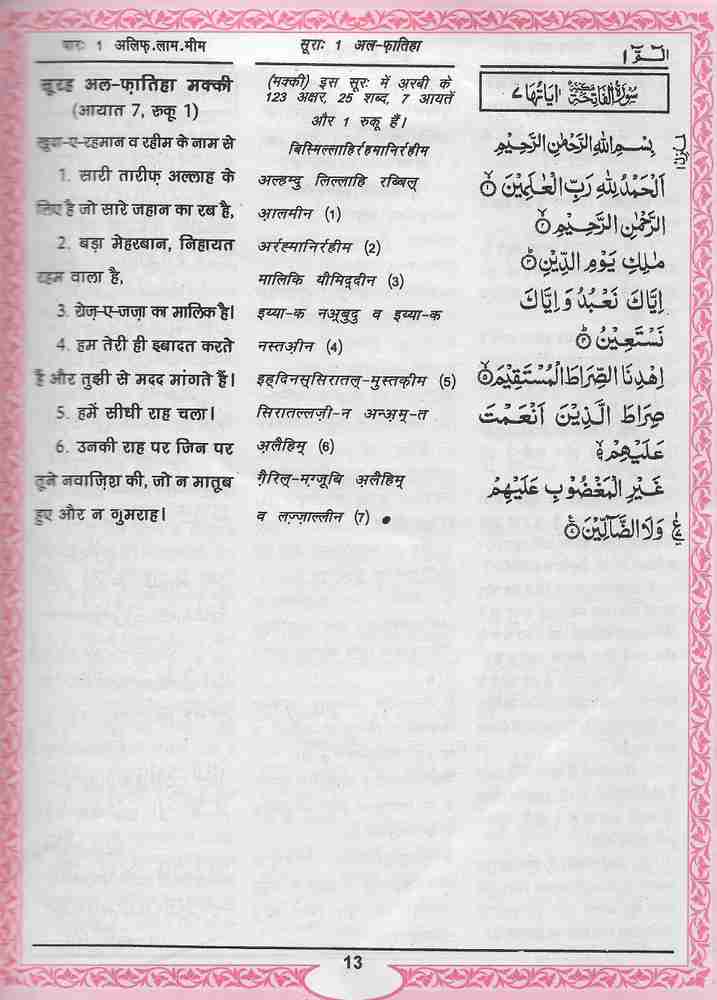 पारः 1 अलिफ़.लाम.मीम
सूरह अल-फ़ातिहा मक्की
(आयात 7, रुकू 1)
खुदा-ए-रहमान व रहीम के नाम से
1. सारी तारीफ़ अल्लाह के
लिए है जो सारे जहान का रब है,
2. बड़ा मेहरबान, निहायत
रहम वाला है,
3. रोज़-ए-जज़ा का मालिक है।
4. हम तेरी ही इबादत करते
हैं और तुझी से मदद मांगते हैं।
5. हमें सीधी राह चला।
6. उनकी राह पर जिन पर
तूने नवाज़िश की, जो न मातूब
हुए और न गुमराह।
सूराः 1 अल-फ़ातिहा
(मक्की) इस सूरः में अ़रबी के
123 अक्षर, 25 शब्द, 7 आयतें
और 1 रुकू हैं।
बिस्मिल्लाहिर्रहमानिर्रहीम
अल्हम्दु लिल्लाहि रब्बिल्
आ़लमीन (1)
अर्रह्मानिर्रहीम (2)
मालिकि यौमिद्दीन (3)
इय्या-क नअ़्बुदु व इय्या-क
नस्तअ़ीन (4)
इह्दिनस्सिरातल्-मुस्तक़ीम (5)
सिरातल्लज़ी-न अन्अ़म्-त
अ़लैहिम् (6)
ग़ैरिल्-मग़्जूबि अ़लैहिम्
व लज़्ज़ाल्लीन (7)
الٓمّٓ ١
سُوْرَةُ الْفَاتِحَةِ مَكِّيَّةٌ اٰيَاتُهَا ٧
بِسْمِ اللّٰهِ الرَّحْمٰنِ الرَّحِيْمِ
اَلْحَمْدُ لِلّٰهِ رَبِّ الْعٰلَمِيْنَ ۝١
الرَّحْمٰنِ الرَّحِيْمِ ۝٢
مٰلِكِ يَوْمِ الدِّيْنِ ۝٣
اِيَّاكَ نَعْبُدُ وَ اِيَّاكَ
نَسْتَعِيْنُ ۝٤
اِهْدِنَا الصِّرَاطَ الْمُسْتَقِيْمَ ۝٥
صِرَاطَ الَّذِيْنَ اَنْعَمْتَ
عَلَيْهِمْ ۝٦
غَيْرِ الْمَغْضُوْبِ عَلَيْهِمْ
وَلَا الضَّآلِّيْنَ ۝٧
13